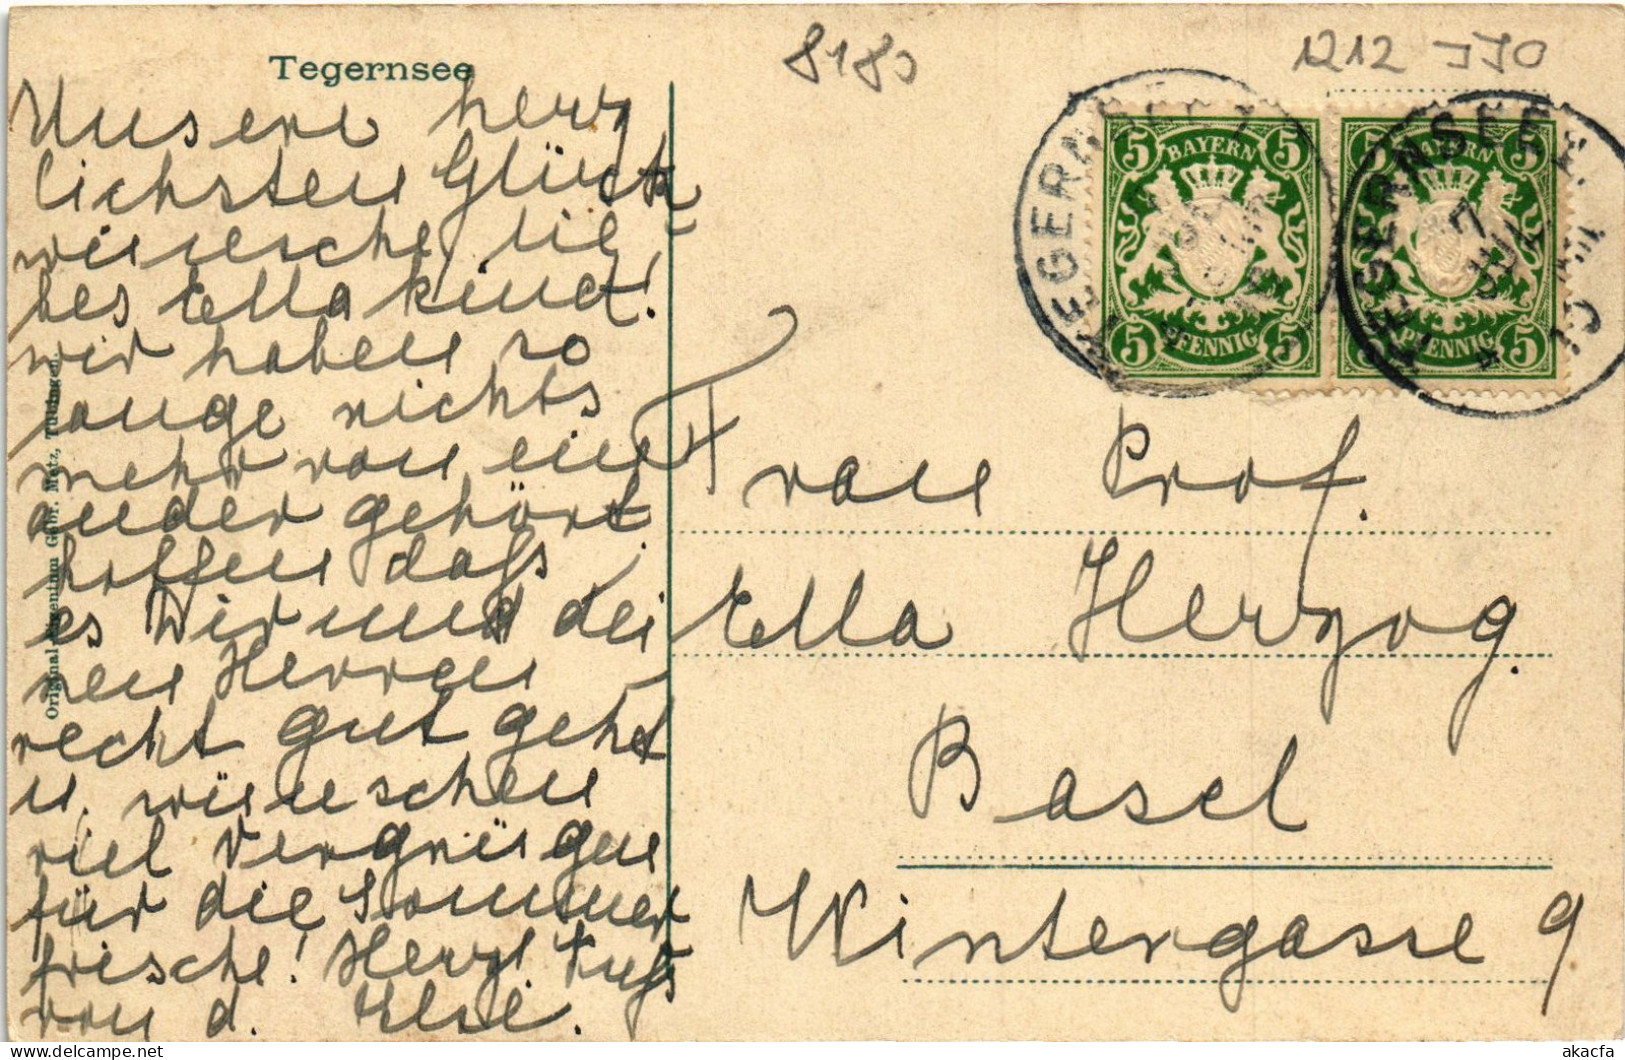 Tegernsee
8183
1212 JJO
Unsere herz
lichsten Glück
wünsche lie
bes Ella kind!
wir haben so
lange nichts
mehr von ein
ander gehört
hoffen dass
es Dir und dei
nen Herren
recht gut geht
u. wünschen
viel Vergnügen
für die Sommer
frische! Herzl. Kuss
von d. Else.
Original
Gebr. Metz, Tübingen.
TEGERNSEE 1
7 JUL
5 BAYERN 5
5 PFENNIG 5
TEGERNSEE 1
7 JUL
5 BAYERN 5
5 PFENNIG
Frau Prof.
Ella Herzog.
Basel
Wintergasse 9
akacfa